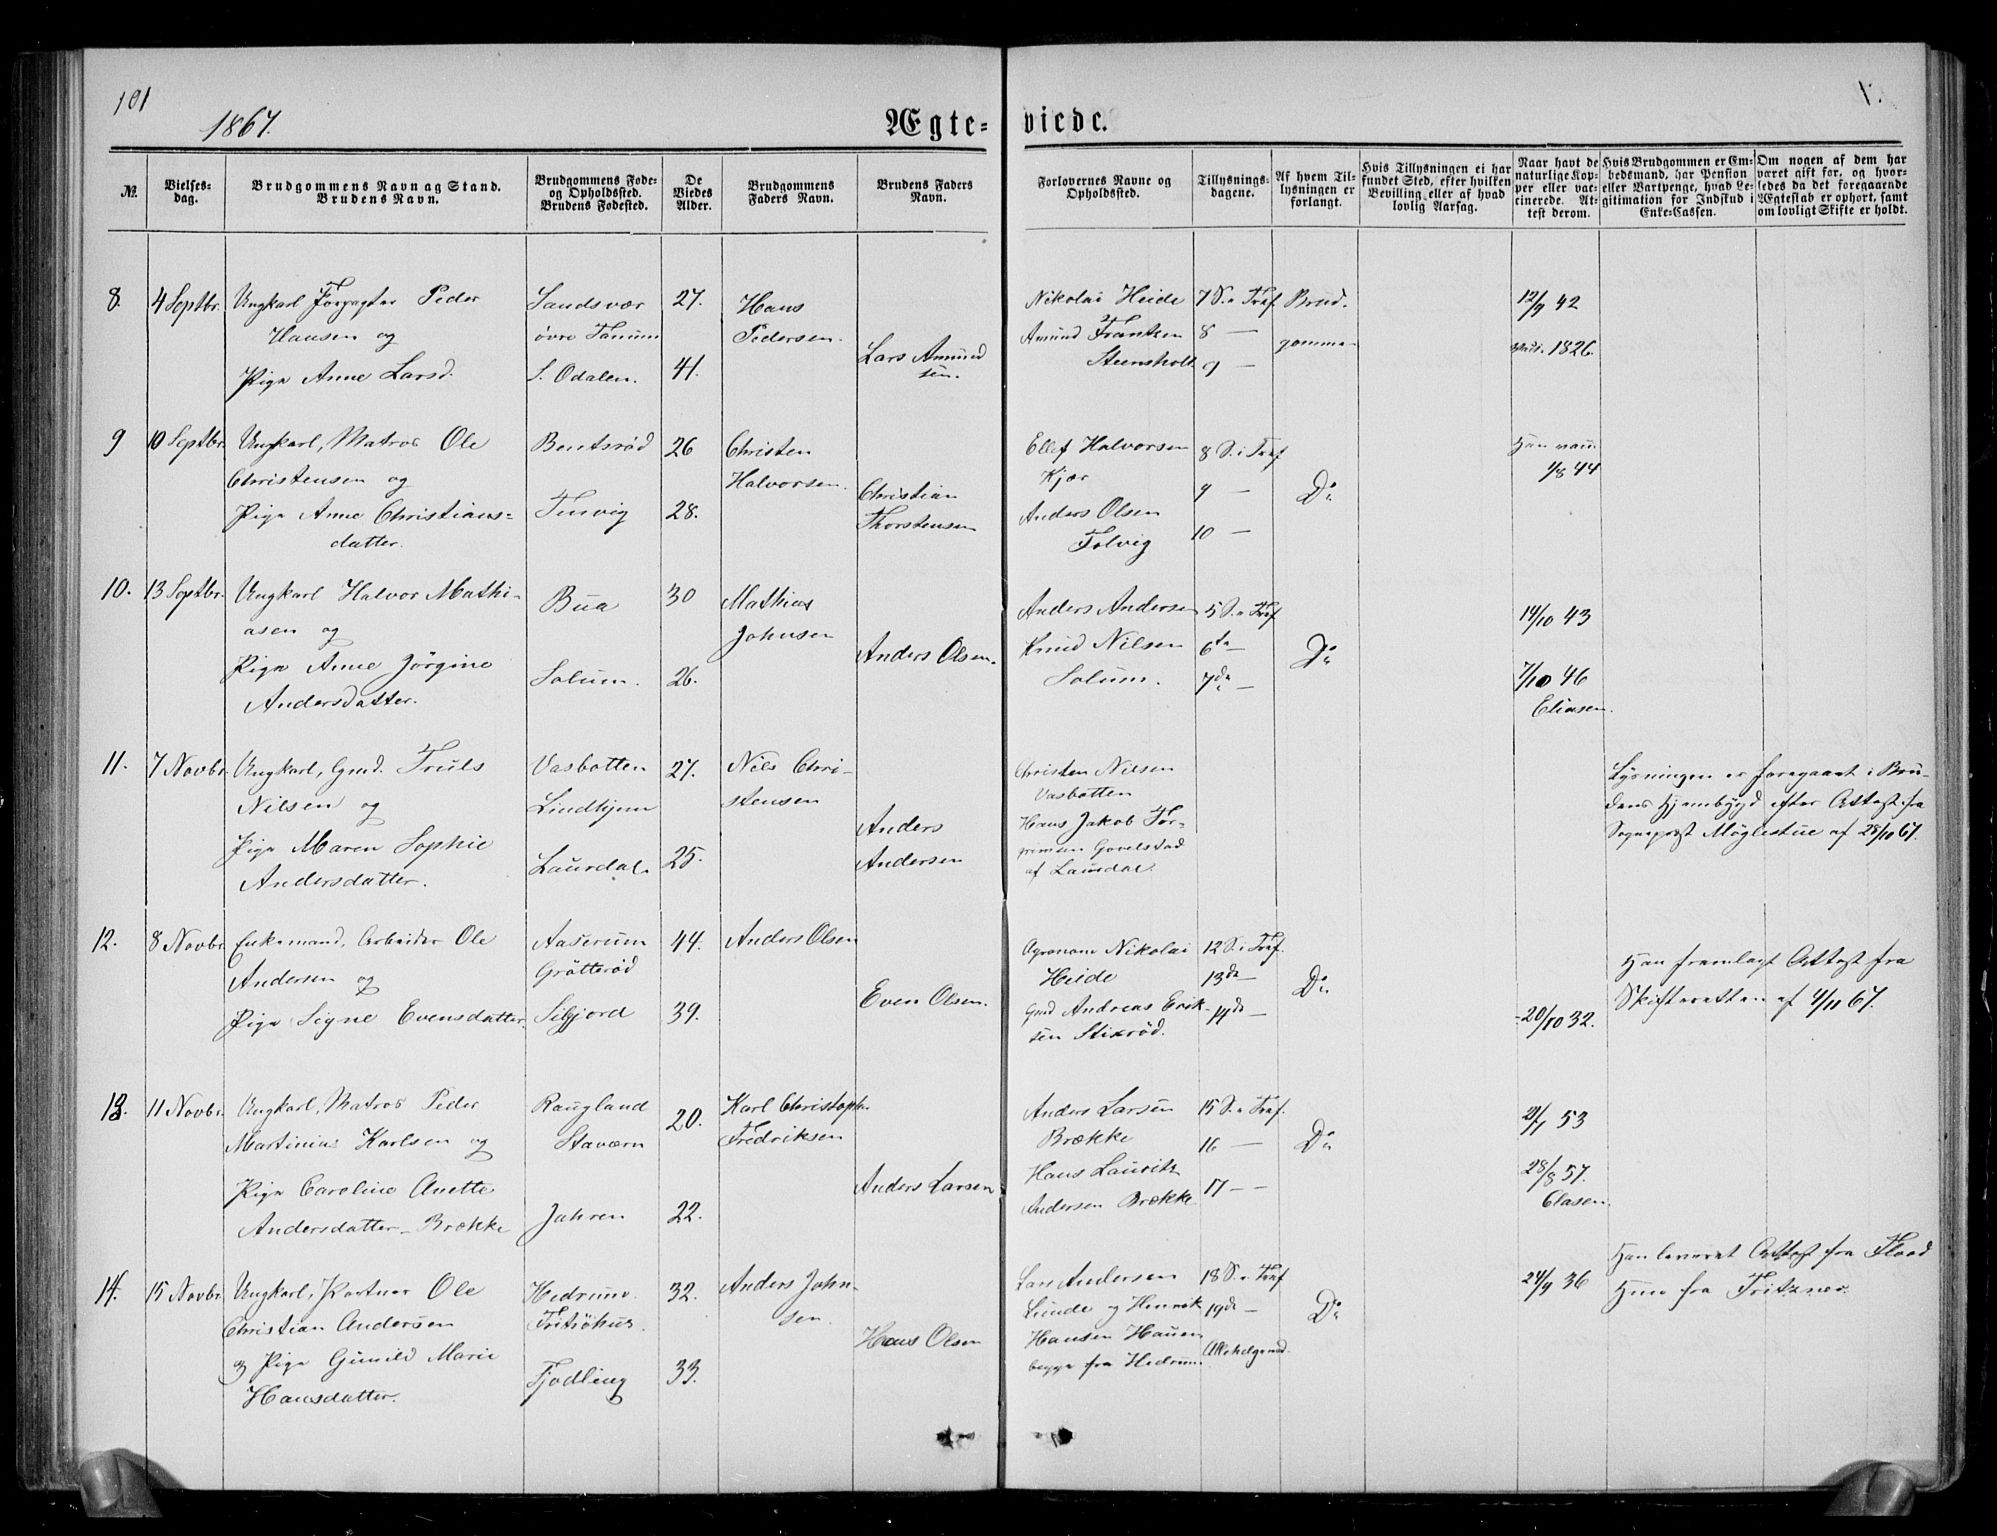 101
1867.
Ægte-
viede.
No.
Vielses-
dag.
Brudgommens Navn ag Stand.
Brudens Navn.
Brudgommens Føde-
og Opholdssted.
Brudens Fødested.
De
Viedes
Alder.
Brudgommens
Faders Navn.
Brudens Faders
Navn.
Forlovernes Navne og
Opholdssted.
Tillysnings-
dagene.
Af hvem Til-
lysningen er
forlangt.
Hvis Tillysningen ei har
fundet Sted, efter hvilken
Bevilling eller af hvad
lovlig Aarsag.
Naar havt de
naturlige Kop-
per eller vac-
cinerede. At-
test derom.
Hvis Brudgommen er Em-
bedsmand, har Pension
eller Vartpenge, hvad Le-
gitimation for Indskud i
Enke-Cassen.
Om nogen af dem har
været gift før, og hvor-
ledes da det foregaaende
Ægteskab er ophørt, samt
om lovligt Skifte er holdt.
8. 4 Septbr. Ungkarl Forpagter Peder
Hansen og
Pige Anne Larsd.
Sandsvær
øvre Fanum
S. Odalen.
27.
41.
Hans
Pedersen.
Lars Amund
sen.
Nikolai Heide
Amund Frantzen
Steensholt
7 S. e Tref
8 —
9 —
Brud-
gommen
12/9 42
1826.
9 10 Septbr. Ungkarl, Matros Ole
Christensen og
Pige Anne Christians-
datter.
Bentsrød
26
28.
Christen
Halvorsen.
Christian
Thorstensen
Ellef Halvorsen
Kjær
Anders Olsen
8 S. i Tref
9 —
10 —
Do
Han vacc.
1/8 44
10. 13 Septbr. Ungkarl Halvor Mathi-
asen og
Pige Anne Jørgine
Andersdatter.
Bua
Solum.
30
26.
Mathias
Johnsen
Anders Olsen.
Anders Andersen
Knud Nilsen
Solum.
5 S. e Tref
6te —
7de —
Do
14/10 43
7/10 46
Eliasen.
11. 7 Novbr. Ungkarl, Gmd. Truls
Nilsen og
Pige Maren Sophie
Andersdatter.
Vasbotten
Lindhjem
Laurdal.
27.
25.
Nils Chri-
stensen
Anders
Andersen
Christen Nilsen
Vasbotten
Hans Jakob Tor-
af Laurdal.
Lysningen er foregaaet i Bru-
dens Hjembygd efter Attest fra
Sognepræst Møglestue af 28/10 67.
12. 8 Novbr. Enkemand, Arbeider Ole
Andersen og
Pige Signe Evensdatter.
Aaserum
Grøtterød
Seljord
44.
39.
Anders Olsen
Even Olsen.
Agronom Nikolai
Heide
Gmd Andreas Erik-
sen Stixrød.
12 S. i Tref.
13de —
14de —
Do
20/10 32.
Han fremlagt Attest fra
Skifteretten af 4/11 67.
13. 11 Novbr. Ungkarl, Matros Peder
Martinius Karlsen og
Pige Caroline Anette
Andersdatter - Brække
Raugland
Staværn
Jahren
20.
22.
Karl Christoph.
Fredriksen
Anders Larsen
Anders Larsen
Brække
Hans Lauritz
Andersen Brække
15 S. e Tref.
16 —
17 —
Do
2/1 53
28/8 57.
Clasen.
14. 15 Novbr. Ungkarl, Ole
Christian Andersen
og Pige Gunild Marie
Hansdatter.
Hedrum.
Fritzöhus.
Fjodling
32.
33.
Anders John-
sen.
Hans Olsen
Lars Andersen
Lunde og Henrik
Hansen Hauen
begge fra Hedrum.
18 S. e Tref
19de —
Do
24/9 36
Han leveret Attest fra Flood
Hun fra Fritzner.